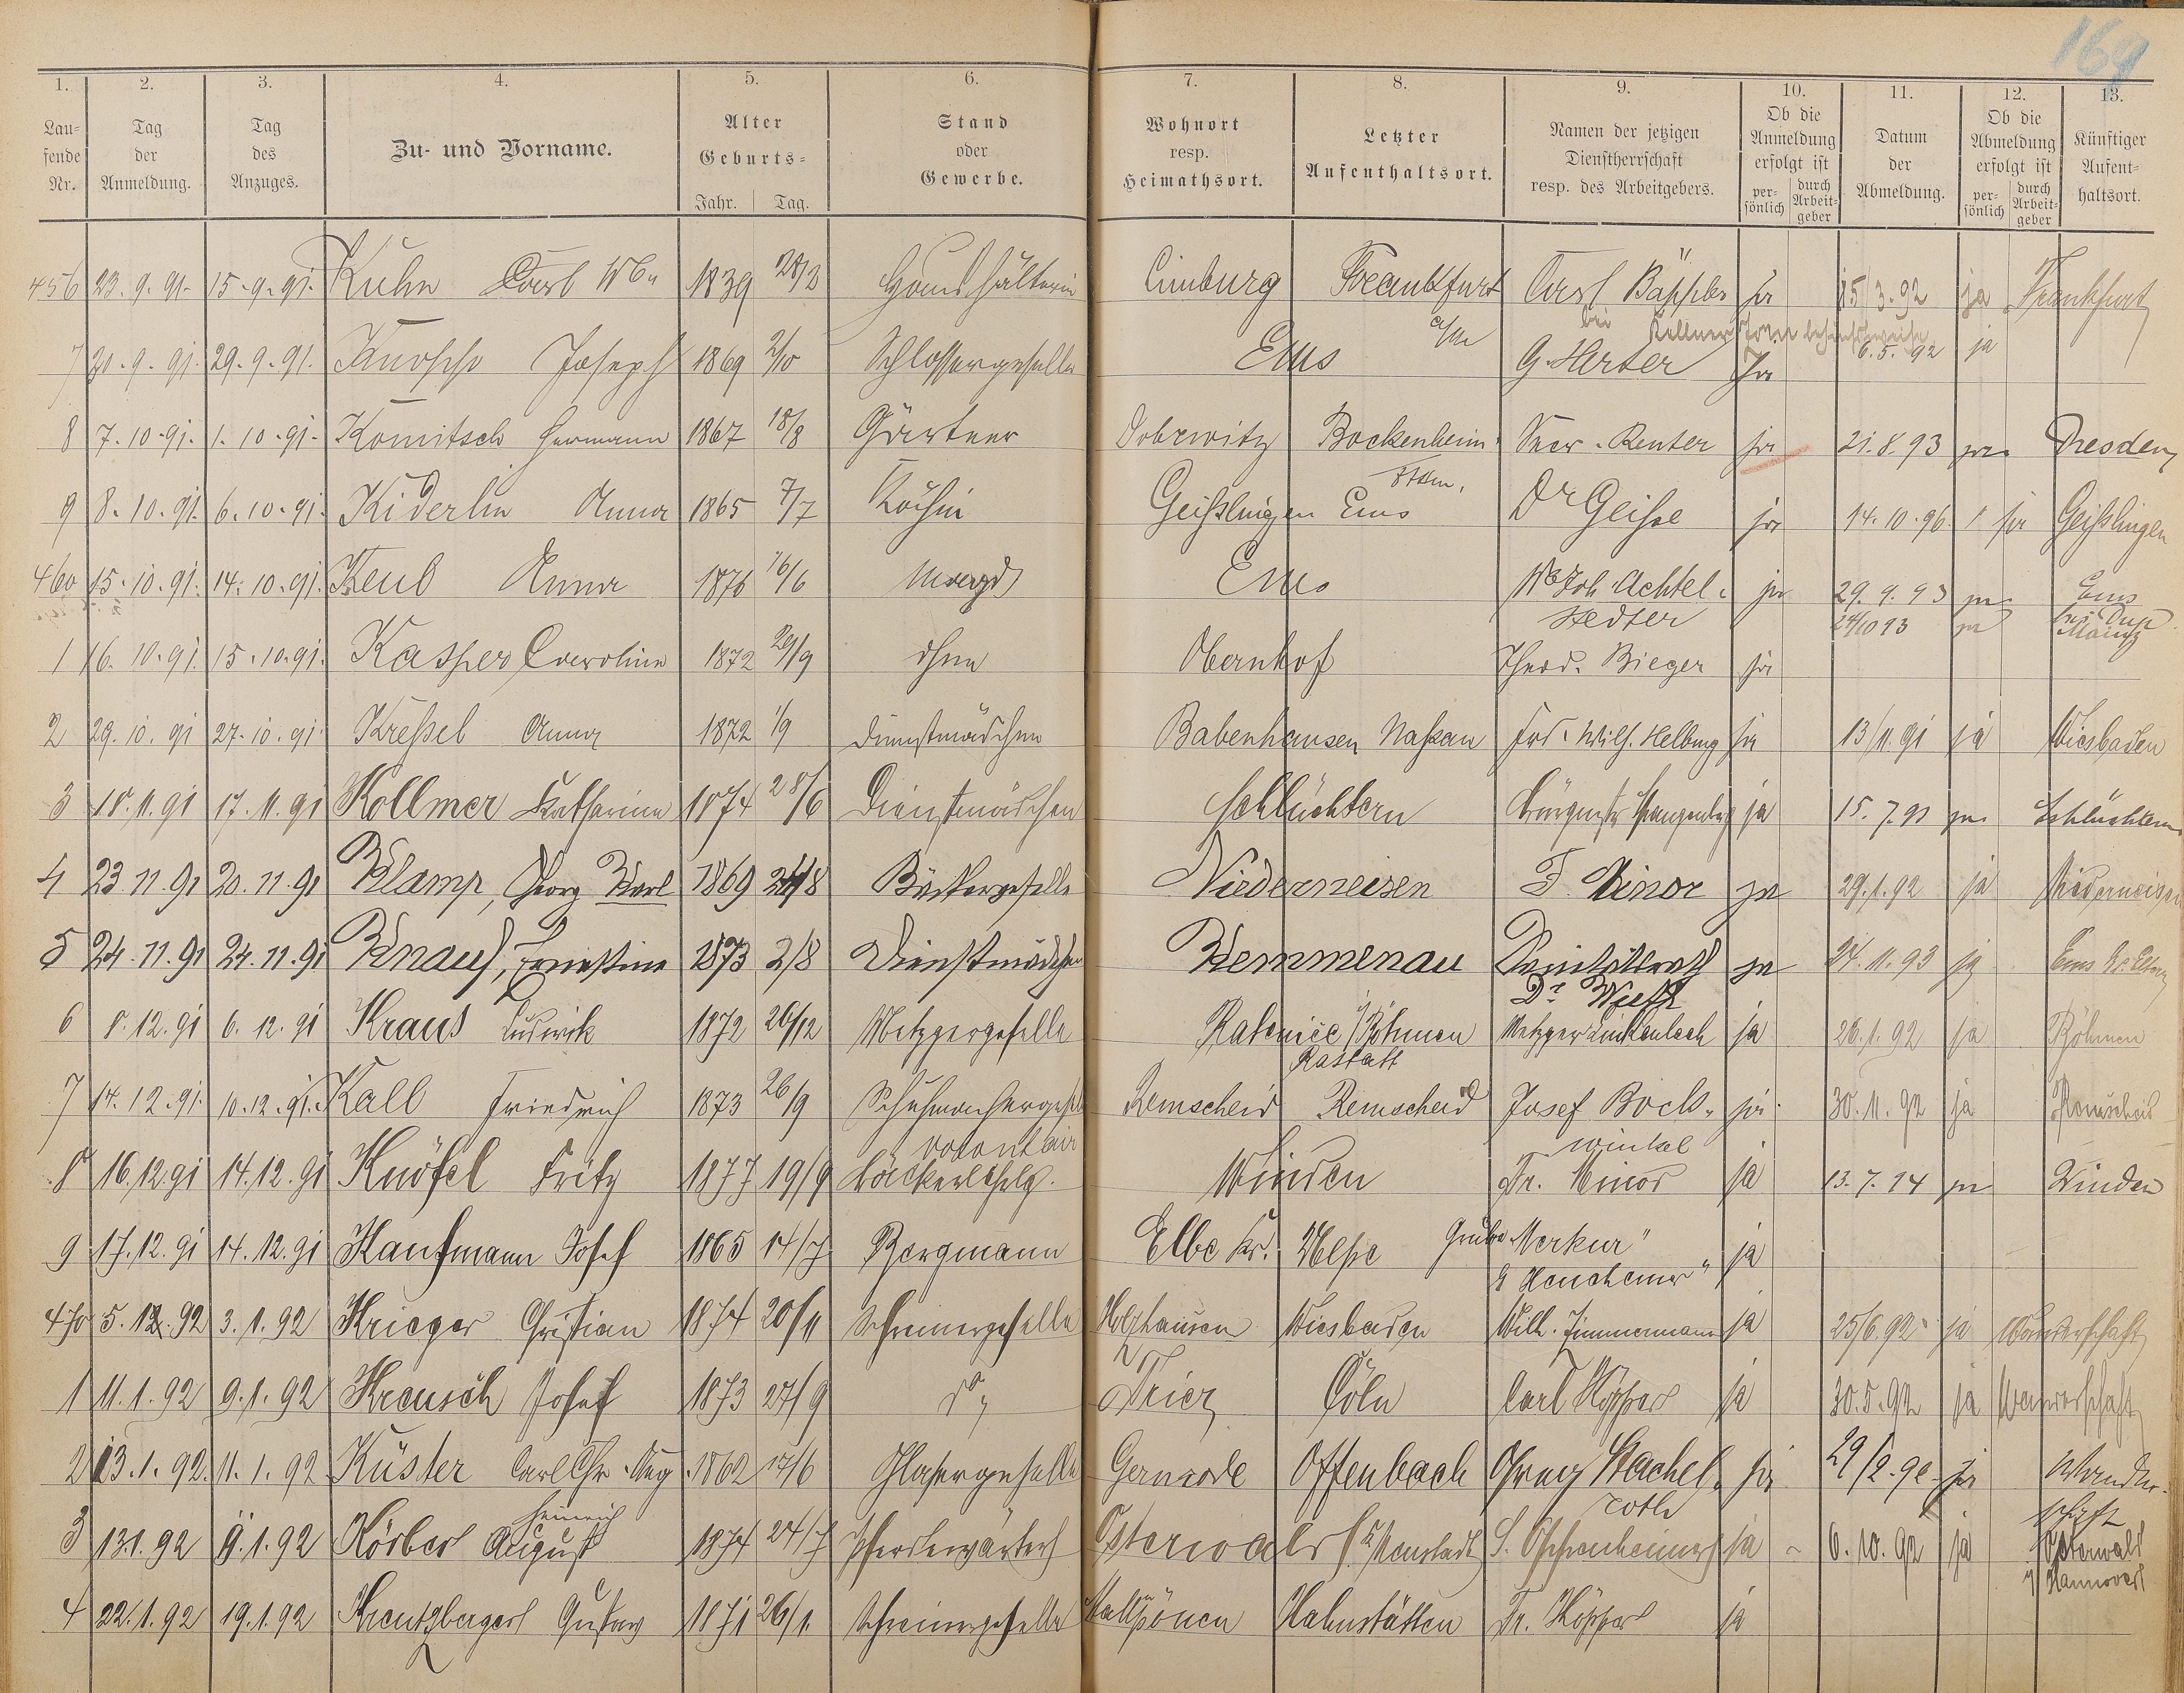 169
1. 2. 3. 4. 5. 6. 7. 8. 9. 10. 11. 12. 13.
Lau-
fende
Nr.
Tag
der
Anmeldung.
Tag
des
Anzuges.
Zu- und Vorname.
Alter
Geburts-
Jahr. Tag.
Stand
oder
Gewerbe.
Wohnort
resp.
Heimathsort.
Letzter
Aufenthaltsort.
Namen der jetzigen
Dienstherrschaft
resp. des Arbeitgebers.
Ob die
Anmeldung
erfolgt ist
per-
sönlich
durch
Arbeit-
geber
Datum
der
Abmeldung.
Ob die
Abmeldung
erfolgt ist
per-
sönlich
durch
Arbeit-
geber
Künftiger
Aufent-
haltsort.
456 23.9.91. 15.9.91. Kuhn Carl Wb. 1839 28/3 Haushälterin Limburg Frankfurt a/M Carl Bäppler ja 15/3.92 ja Frankfurt
7 30.9.91. 29.9.91. Knopp Joseph 1869 2/10 Schlossergeselle Ems G. Herber Ja 6.5.92 ja
8 7.10.91. 1.10.91. Komitsch Hermann 1867 18/8 Gärtner Dobrwitz Bockenheim Renter ja 21.8.93 ja Dresden
9 8.10.91. 6.10.91. Kiderlin Anna 1865 7/7 Köchin Geißlingen Ems Dr Geisse ja 14.10.96. ja Geißlingen
460 15.10.91. 14.10.91. Keul Anna 1876 16/6 Magd Ems Wb Joh. Achtel-
stedter ja 29.9.93 ja Ems
24/10 93 ja Mainz
1 16.10.91. 15.10.91. Kasper Caroline 1872 29/9 ohne Obernhof Theod. Bieger ja
2 29.10.91 27.10.91. Kreßel Anna 1872 1/9 Dienstmädchen Babenhausen Naßau Frd. Wilh. Helbing ja 13/11.91 ja Wiesbaden
3 18.11.91 17.11.91 Kollmer Katharina 1874 28/6 Dienstmädchen Schlüchtern Bürgmstr Spangenberg ja 15.7.93 ja Schlüchtern
4 23 11.91 20.11.91 Klamp, Georg Karl 1869 24/8 Bäckergeselle Niederneisen F. Minor ja 29.1.92 ja Niederneisen
5 24.11.91 24.11.91 Knauf, Ernestine 1873 2/8 Dienstmädchen Kemmenau Sanitätsrath
Dr ja 24.11.93 ja Ems
6 8.12.91 6.12.91 Kraus Ludwik 1872 26/12 Metzgergeselle i/Böhmen
Rastatt Metzger Linkenbach ja 26.1.92 ja Böhmen
7 14.12.91. 10.12.91. Kall Friedrich 1873 26/9 Schuhmachergesell Remscheid Remscheid Josef Bocks-
winkel ja 30.11.92 ja Remscheid
8 16.12.91 14.12.91 Knöfel Fritz 1877 19/9 volontair
Bäckerlehrlg. Winden Fr. Minor ja 13.7.94 ja Winden
9 17.12.91 14.12.91 Kaufmann Josef 1865 14/7 Bergmann Elbe Kr. Grube „Merkur" ja
470 5.1.92 3.1.92 Krieger Christian 1874 20/11 Schreinergeselle Holzhausen Wiesbaden Wilh. Zimmermann ja 25/6.92. ja Wanderschaft
1 11.1.92 9.1.92 Kreusch Josef 1873 27/9 do Trier Cöln Carl Höpper ja 30.5.92 ja Wanderschaft
2 13.1.92. 11.1.92 Küster Carl Chr. Aug 1862 17/6 Glasergeselle Gernrode Offenbach Stachel-
roth ja 29/2.92 ja Wander-
schaft
3 13.1.92 9.1.92 Körber Heinrich
August 1874 24/7 Pferdewärter Osterwald Neustadt S. Oppenheimer ja 6.10.92 ja Osterwald
Hannover
4 22.1.92 19.1.92 Kreutzberger Gustav 1871 26/1. Schreinergeselle Hahnstätten Fr. Höpper ja